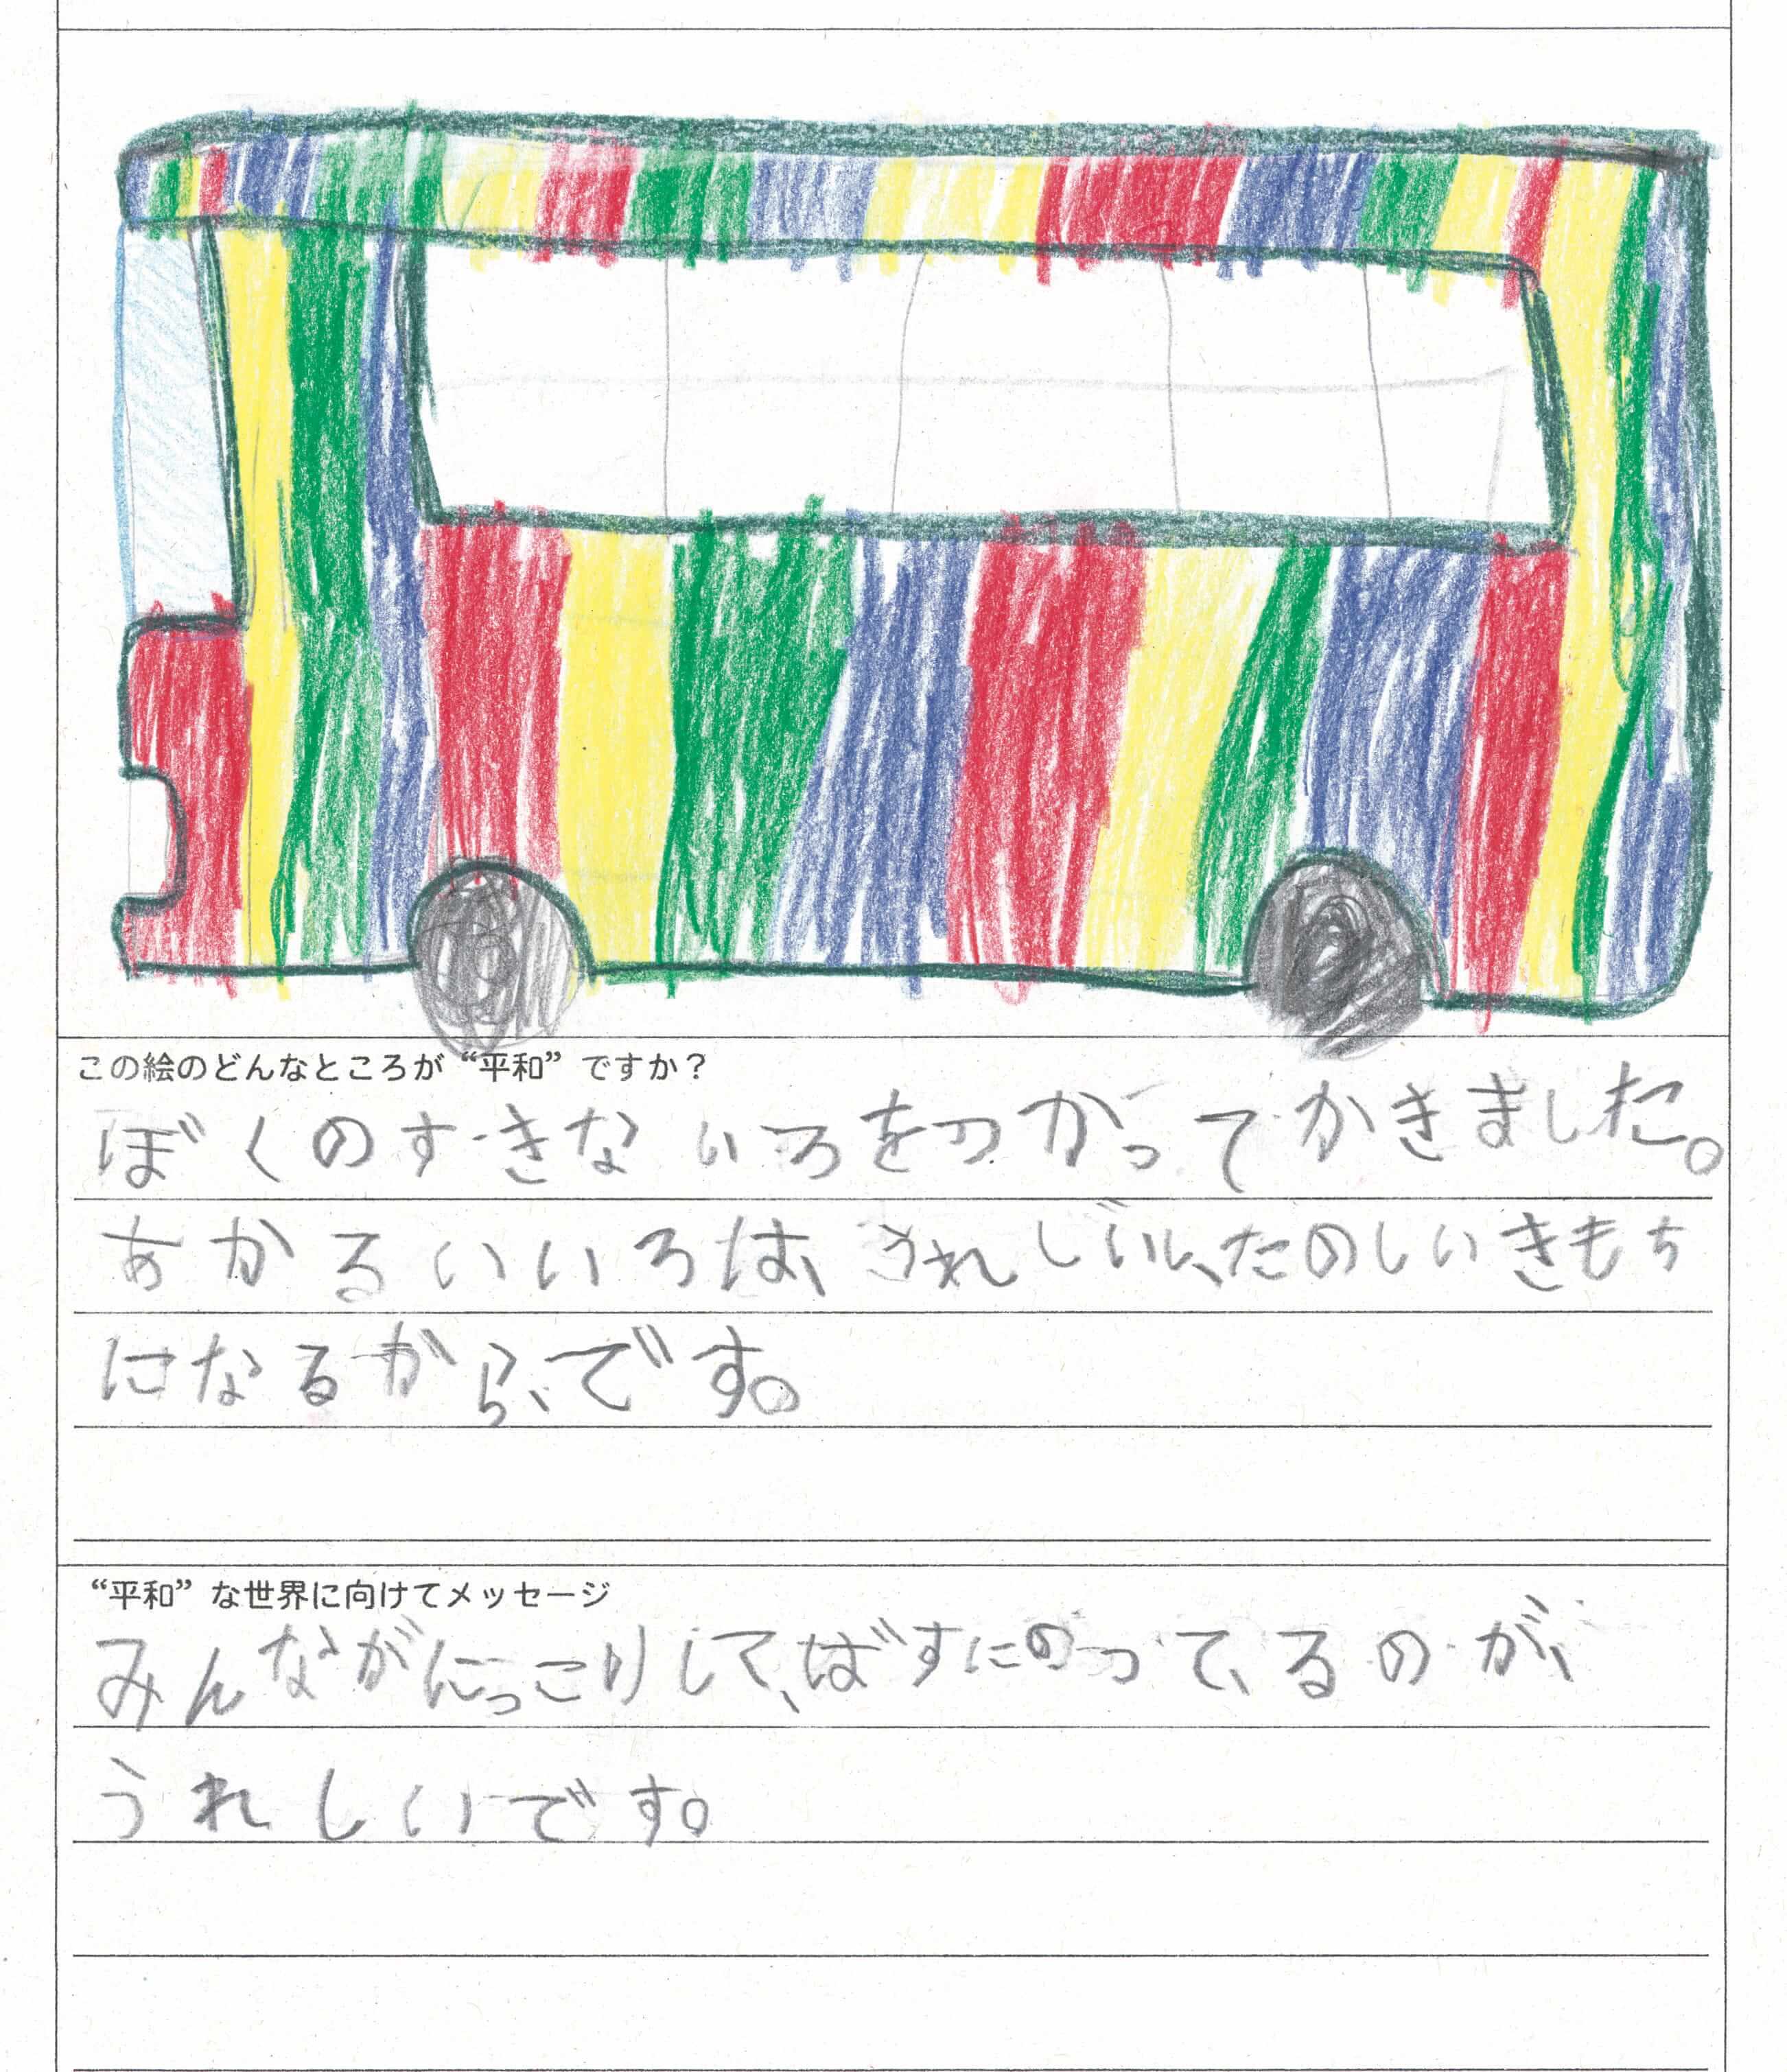 この絵のどんなところが“平和”ですか？
ぼくのすきないろをつかってかきました。
あかるいいろは、うれしいし、たのしいきもち
になるから、です。
“平和”な世界に向けてメッセージ
みんながにっこりして、ばすにのって、るのが、
うれしいです。